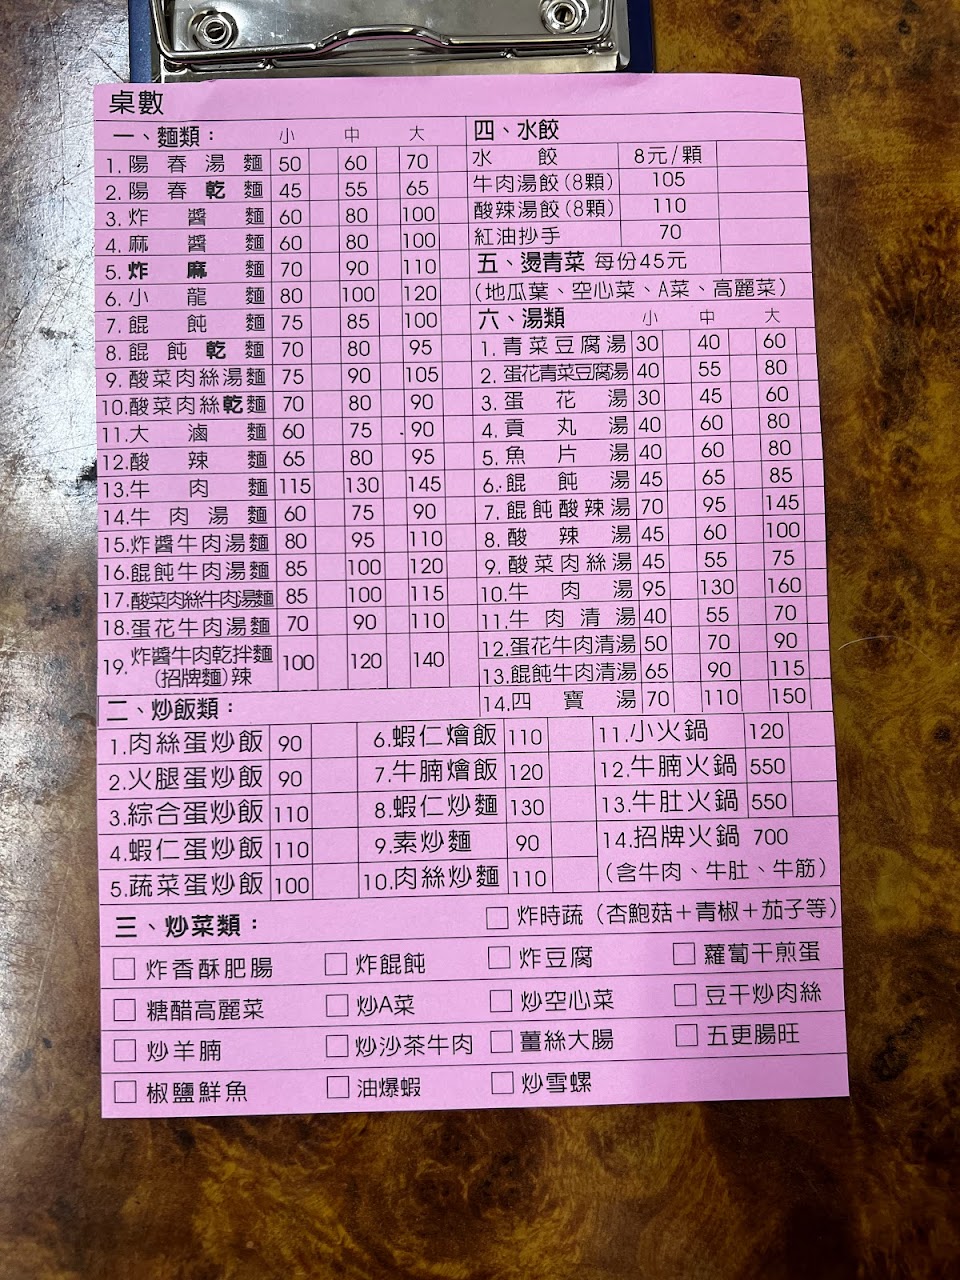 桌數
一、麵類： 小 中 大
1.陽春湯麵 50 60 70
2.陽春乾麵 45 55 65
3.炸醬麵 60 80 100
4.麻醬麵 60 80 100
5.炸麻麵 70 90 110
6.小龍麵 80 100 120
7.餛飩麵 75 85 100
8.餛飩乾麵 70 80 95
9.酸菜肉絲湯麵 75 90 105
10.酸菜肉絲乾麵 70 80 90
11.大滷麵 60 75 90
12.酸辣麵 65 80 95
13.牛肉麵 115 130 145
14.牛肉湯麵 60 75 90
15.炸醬牛肉湯麵 80 95 110
16.餛飩牛肉湯麵 85 100 120
17.酸菜肉絲牛肉湯麵 85 100 115
18.蛋花牛肉湯麵 70 90 110
19.炸醬牛肉乾拌麵 100 120 140
(招牌麵)辣
四、水餃
水餃 8元/顆
牛肉湯餃(8顆) 105
酸辣湯餃(8顆) 110
紅油抄手 70
五、燙青菜 每份45元
(地瓜葉、空心菜、A菜、高麗菜)
六、湯類 小 中 大
1.青菜豆腐湯 30 40 60
2.蛋花青菜豆腐湯 40 55 80
3.蛋花湯 30 45 60
4.貢丸湯 40 60 80
5.魚片湯 40 60 80
6.餛飩湯 45 65 85
7.餛飩酸辣湯 70 95 145
8.酸辣湯 45 60 100
9.酸菜肉絲湯 45 55 75
10.牛肉湯 95 130 160
11.牛肉清湯 40 55 70
12.蛋花牛肉清湯 50 70 90
13.餛飩牛肉清湯 65 90 115
14.四寶湯 70 110 150
二、炒飯類：
1.肉絲蛋炒飯 90
2.火腿蛋炒飯 90
3.綜合蛋炒飯 110
4.蝦仁蛋炒飯 110
5.蔬菜蛋炒飯 100
6.蝦仁燴飯 110
7.牛腩燴飯 120
8.蝦仁炒麵 130
9.素炒麵 90
10.肉絲炒麵 110
11.小火鍋 120
12.牛腩火鍋 550
13.牛肚火鍋 550
14.招牌火鍋 700
(含牛肉、牛肚、牛筋)
三、炒菜類： □ 炸時蔬（杏鮑菇＋青椒＋茄子等）
□ 炸香酥肥腸 □ 炸餛飩 □ 炸豆腐 □ 蘿蔔干煎蛋
□ 糖醋高麗菜 □ 炒A菜 □ 炒空心菜 □ 豆干炒肉絲
□ 炒羊腩 □ 炒沙茶牛肉 □ 薑絲大腸 □ 五更腸旺
□ 椒鹽鮮魚 □ 油爆蝦 □ 炒雪螺